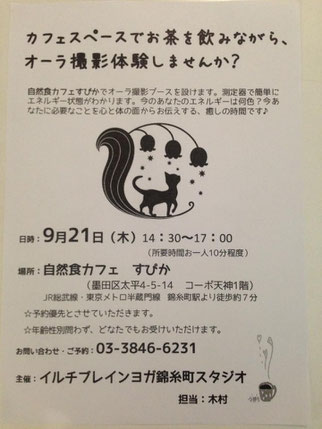 カフェスペースでお茶を飲みながら、
オーラ撮影体験しませんか?
自然食カフェすぴかでオーラ撮影ブースを設けます。測定器で簡単に
エネルギー状態がわかります。今のあなたのエネルギーは何色?今あ
なたに必要なことを心と体の面からお伝えする、癒しの時間です♪
日時:9月21日(木)14:30~17:00
(所要時間お一人10分程度)
場所:自然食カフェ すぴか
(墨田区太平4-5-14 コーポ天神1階)
JR総武線・東京メトロ半蔵門線 錦糸町駅より徒歩約7分
☆予約優先とさせていただきます。
☆年齢性別問わず、どなたでもお受けいただけます。
お問い合わせ・ご予約:03-3846-6231
主催:イルチブレインヨガ錦糸町スタジオ
担当:木村